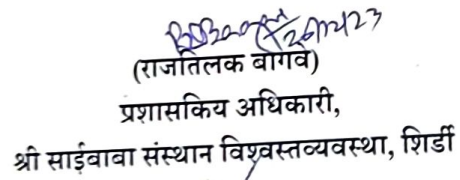 26/12/23
(राजतिलक बागवे)
प्रशासकिय अधिकारी,
श्री साईबाबा संस्थान विश्वस्तव्यवस्था, शिर्डी